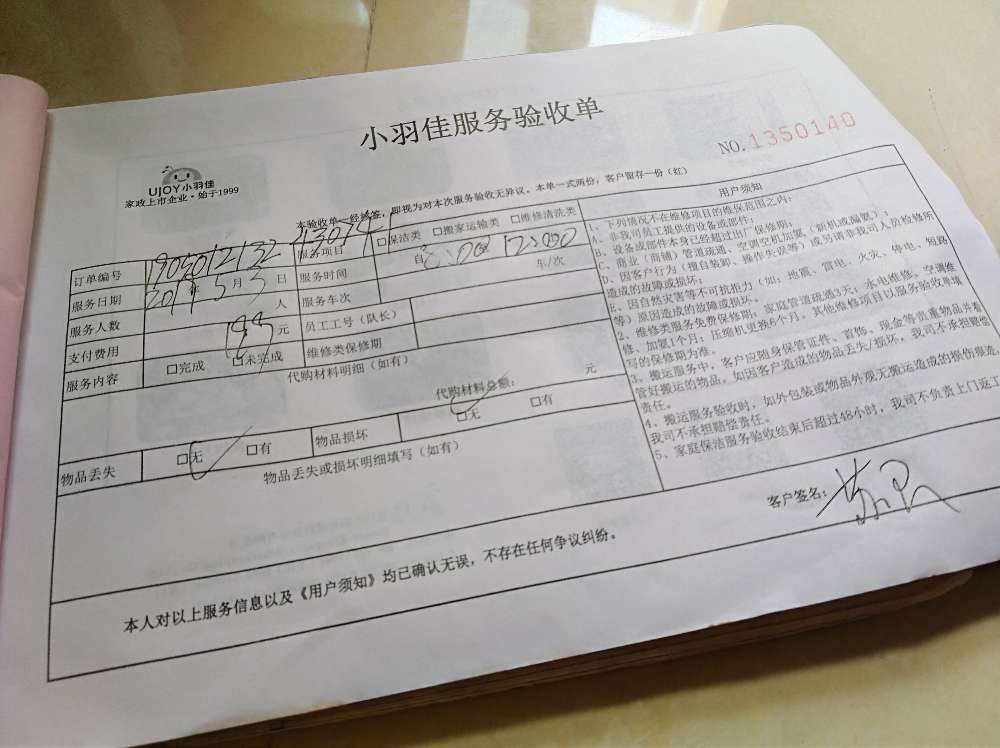 小羽佳服务验收单
NO.1350140
UJOY 小羽佳
家政上市企业·始于1999
本验收单一经签, 即视为对本次服务验收无异议。本单一式两份, 客户留存一份（红）
订单编号
服务项目 □保洁类 □搬家运输类 □维修清洗类
服务日期 2019年5月3日 服务时间 自
服务人数 人 服务车次 车/次
支付费用 元 员工工号（队长）
服务内容 □完成 □未完成 维修类保修期
代购材料明细（如有）
代购材料总额： 元
物品丢失 □无 □有 物品损坏 □无 □有
物品丢失或损坏明细填写（如有）
用户须知
1、下列情况不在维修项目的维保范围之内：
A、非我司员工提供的设备或部件；
B、设备或部件本身已经超过出厂保修期；
C、商业（商铺）管道疏通、空调空机加氟（新机或漏氟）；
D、因客户行为（擅自装卸、操作失误等）或另请非我司人员检修所
造成的故障或损坏；
E、因自然灾害等不可抗拒力（如：地震、雷电、火灾、停电、短路
等）原因造成的故障或损坏。
2、维修类服务免费保修期：家庭管道疏通3天；水电维修、空调维
修、加氨1个月；压缩机更换6个月。其他维修项目以服务验收单填
写的保修期为准。
3、搬运服务中，客户应随身保管证件、首饰、现金等贵重物品并看
管好搬运的物品，如因客户造成的物品丢失/损坏，我司不承担赔偿
责任。
4、搬运服务验收时，如外包装或物品外观无搬运造成的损伤痕迹
我司不承担赔偿责任。
5、家庭保洁服务验收结束后超过48小时，我司不负责上门返工
客户签名：
本人对以上服务信息以及《用户须知》均已确认无误，不存在任何争议纠纷。